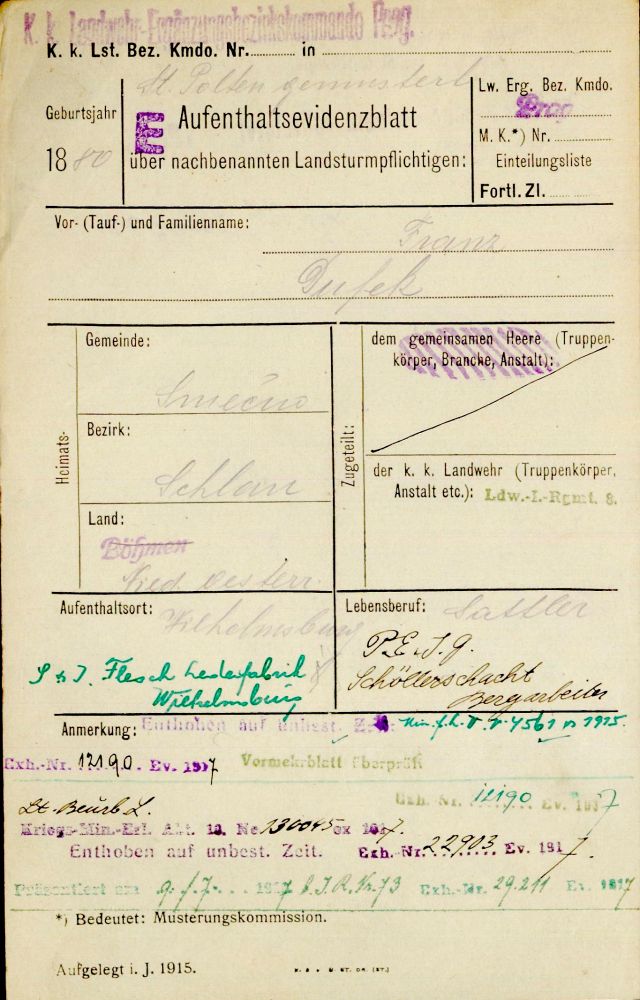 K. k. Landwehr-Ergänzungsbezirkskommando Prag.
K. k. Lst. Bez. Kmdo. Nr. in
St. Pölten gemustert
Lw. Erg. Bez. Kmdo.
Prag
Geburtsjahr
1880
E
Aufenthaltsevidenzblatt
über nachbenannten Landsturmpflichtigen:
M. K.*) Nr.
Einteilungsliste
Fortl. Zl.
Vor- (Tauf-) und Familienname:
Franz
Dufek
Heimats-
Gemeinde:
Smečno
Bezirk:
Schlan
Land:
Böhmen
Nied. Oesterr.
Zugeteilt:
dem gemeinsamen Heere (Truppen-
körper, Branche, Anstalt):
der k. k. Landwehr (Truppenkörper,
Anstalt etc.): Ldw.-I.-Rgmt. 8.
Aufenthaltsort:
Wilhelmsburg
S & J. Flesch Lederfabrik
Wilhelmsburg
Lebensberuf: Sattler
P.E.I.G.
Schöllerschacht
Bergarbeiter
Anmerkung: Enthoben auf unbest. Zeit. Min. f. L. V. 4561 1915.
Exh.-Nr. 12190 Ev. 1917 Vormerkblatt überprüft
Exh. Nr. 12190 Ev. 1917
Lt. Beurb L.
Kriegs-Min.-Erl. Abt. 10. Nr. 130045 ex 1917.
Enthoben auf unbest. Zeit. Exh.-Nr. 22903 Ev. 1917.
Präsentiert am 9./7. 1917 b. I.R. Nr. 73 Exh.-Nr. 29.211 Ev. 1917
*) Bedeutet: Musterungskommission.
Aufgelegt i. J. 1915.